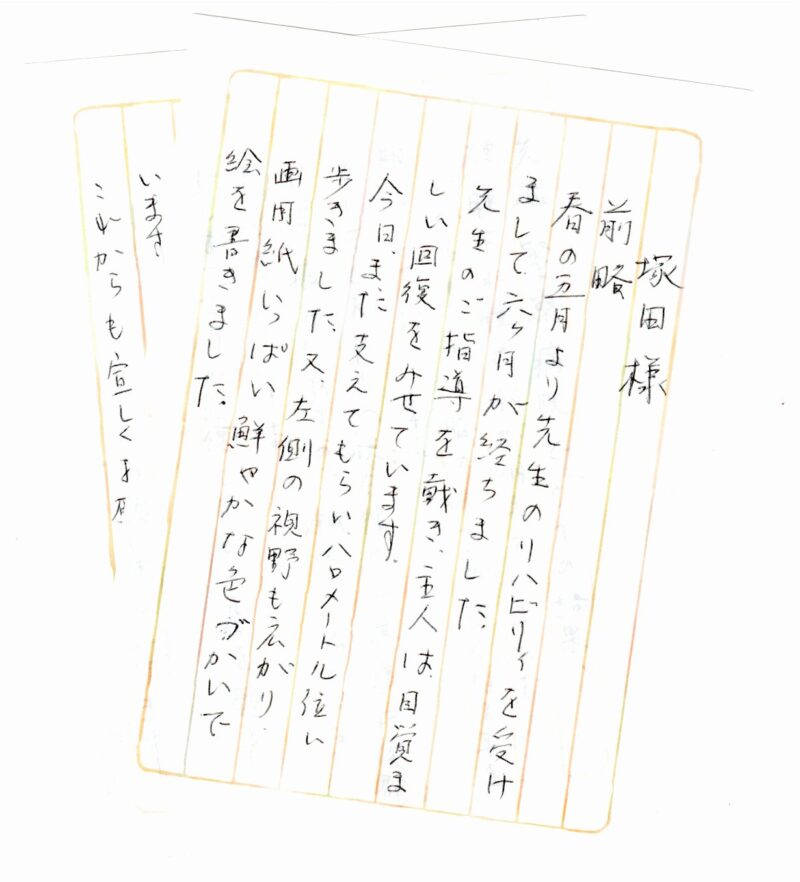 塚田様
前略
春の五月より先生のリハビリィを受け
まして六ヶ月が経ちました
先生のご指導を戴き、主人は、目覚ま
しい回復をみせています。
今日、また支えてもらい、八〇メートル位い
歩きました。又、左側の視野も広がり、
画用紙いっぱい鮮やかな色づかいで
絵を書きました。
いまさ
これからも宜しくお